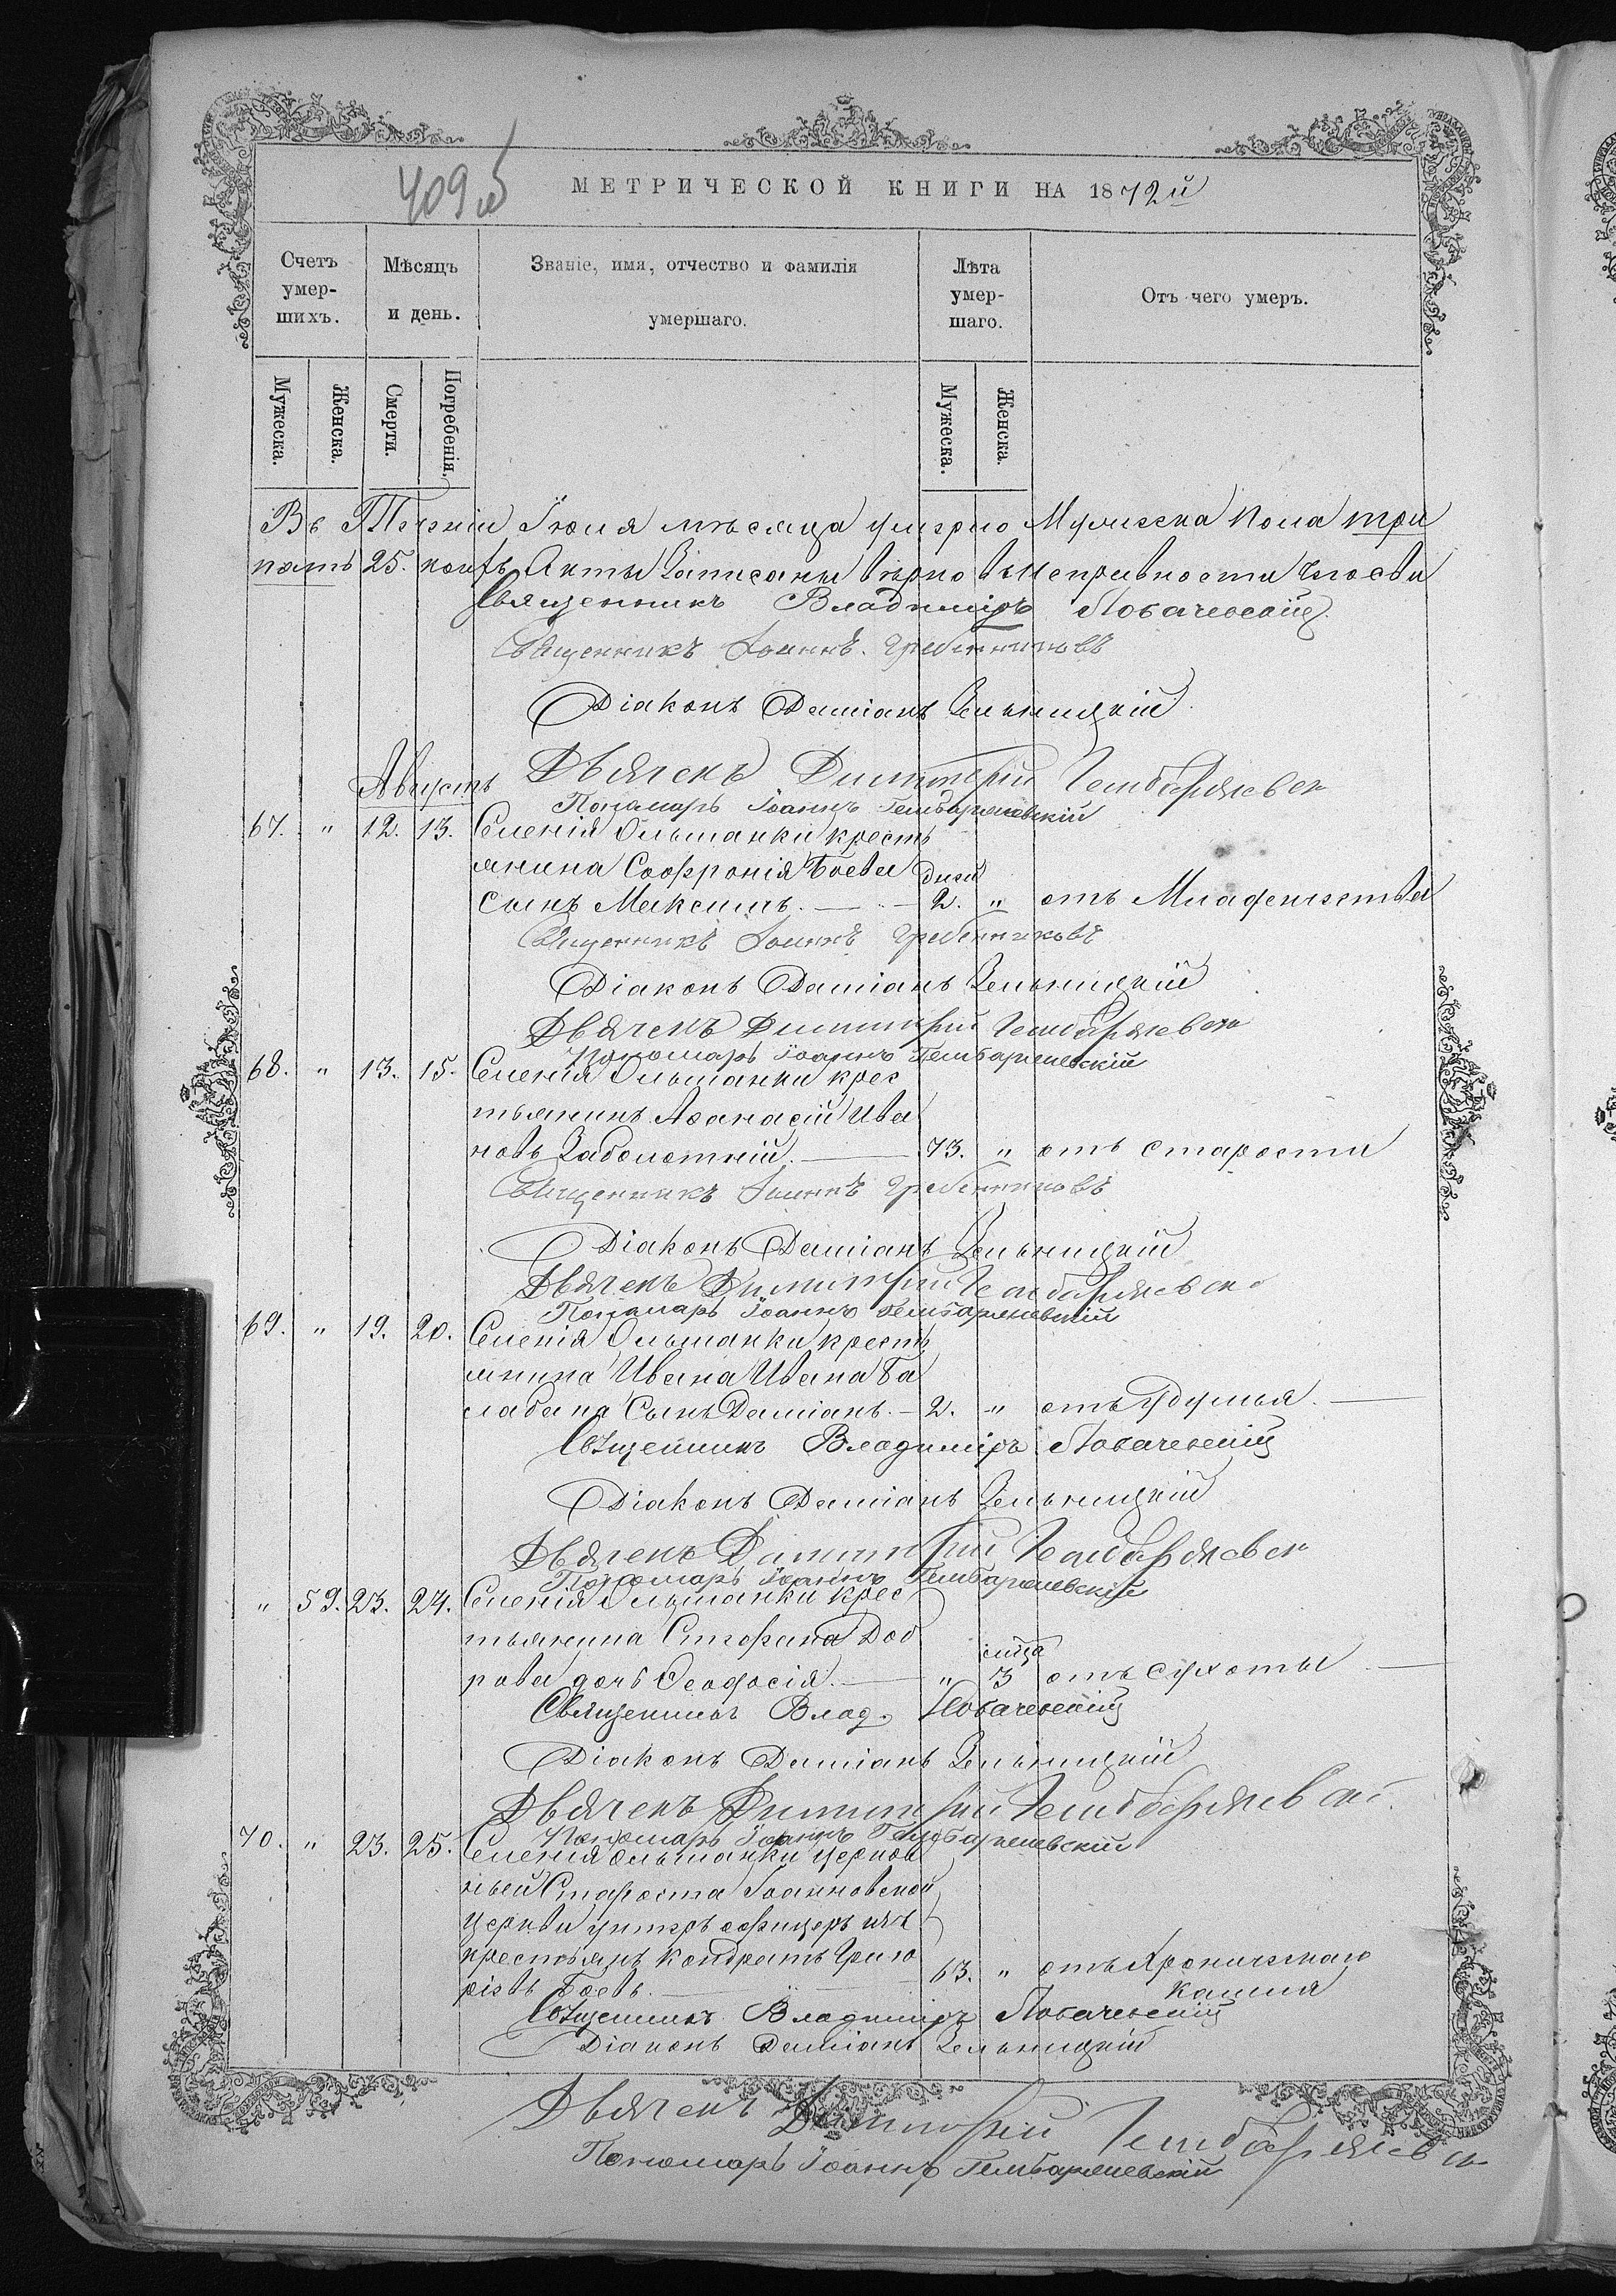 409 об
МЕТРИЧЕСКОЙ КНИГИ НА 1872й
Счетъ умер-шихъ.
Мѣсяцъ и день.
Званіе, имя, отчество и фамилія умершаго.
Лѣта умер-шаго.
Отъ чего умеръ.
Мужеска.
Женска.
Смерти.
Погребенія.
Мужеска.
Женска.
Въ Теченіи Іюля мѣсяца умерло Мужеска пола три
Акты Записаны вѣрно въ исправности
Священникъ Владиміръ Лобачевскій
Священникъ Іоаннъ Гребенниковъ
Діаконъ Даміанъ Зельницкій
Дьячекъ Димитрій Гембаржевск
Августъ
Пономарь Іоаннъ Гембаржевскій
67. " 12. 13. Селенія Ольшанки кресть
янина Софронія Боева дней
Сынъ Максимъ. — 2. " отъ Младенчества
Священникъ Іоаннъ Гребенниковъ
Діаконъ Даміанъ Зельницкій
Дьячекъ Димитрій Гембаржевск
Пономарь Іоаннъ Гембаржевскій
68. " 13. 15. Селенія Ольшанки крес
тьянинъ Аѳанасій Ива
новъ Заболотній. — 73. " отъ старости
Священникъ Іоаннъ Гребенниковъ
Діаконъ Даміанъ Зельницкій
Дьячекъ Димитрій Гембаржевск
Пономарь Іоаннъ Гембаржевскій
69. " 19. 20. Селенія Ольшанки кресть
янина Ивана Ивана Ба
лабана Сынъ Даміанъ. — 2. " отъ Удушья. —
Священникъ Владиміръ Лобачевскій
Діаконъ Даміанъ Зельницкій
Дьячекъ Димитрій Гембаржевск
Пономарь Іоаннъ Гембаржевскій
" 59. 23. 24. Селенія Ольшанки крес
тьянина Стефана Доб
рова дочь Ѳеодосія. — " 3 отъ сухоты —
Священникъ Влад. Лобачевскій
Діаконъ Даміанъ Зельницкій
Дьячекъ Димитрій Гембаржевск
Пономарь Іоаннъ Гембаржевскій
70. " 23. 25. Селенія Ольшанки церков
ный Староста Іоанновской
церкви унтеръ офицеръ изъ
крестьянъ Кондратъ Григо
рievъ Боевъ. — 63. " отъ Хроническаго
кашля
Священникъ Владиміръ Лобачевскій
Діаконъ Даміанъ Зельницкій
Дьячекъ Димитрій Гембаржевск
Пономарь Іоаннъ Гембаржевскій